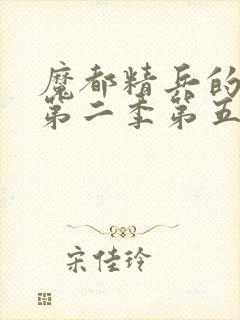 魔都精兵的
第二季第五
宋佳玲